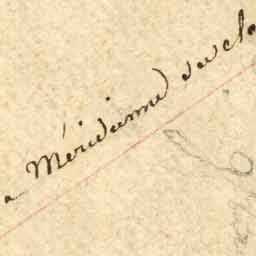 Méridienne du cl